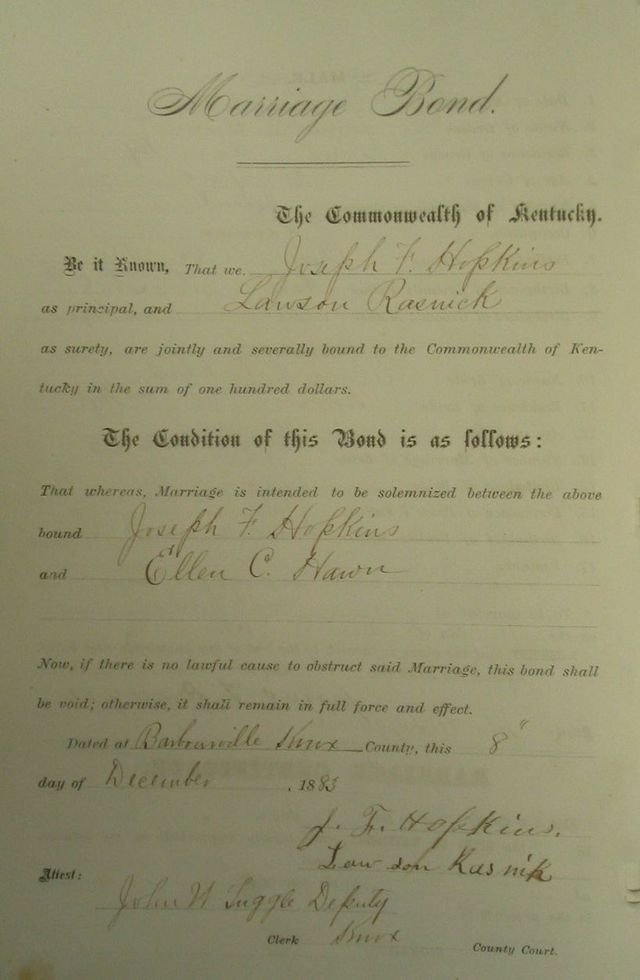 Marriage Bond.
The Commonwealth of Kentucky.
Be it Known, That we Joseph F. Hopkins
as principal, and Lawson Rasnick
as surety, are jointly and severally bound to the Commonwealth of Ken-
tucky in the sum of one hundred dollars.
The Condition of this Bond is as follows:
That whereas, Marriage is intended to be solemnized between the above
bound Joseph F. Hopkins
and Ellen C. Hawn
Now, if there is no lawful cause to obstruct said Marriage, this bond shall
be void; otherwise, it shall remain in full force and effect.
Dated at Barbourville Knox County, this 8"
day of December, 1883
J. F. Hopkins.
Law son Rasnik
Attest:
John W Tuggle Deputy
Clerk Knox County Court.